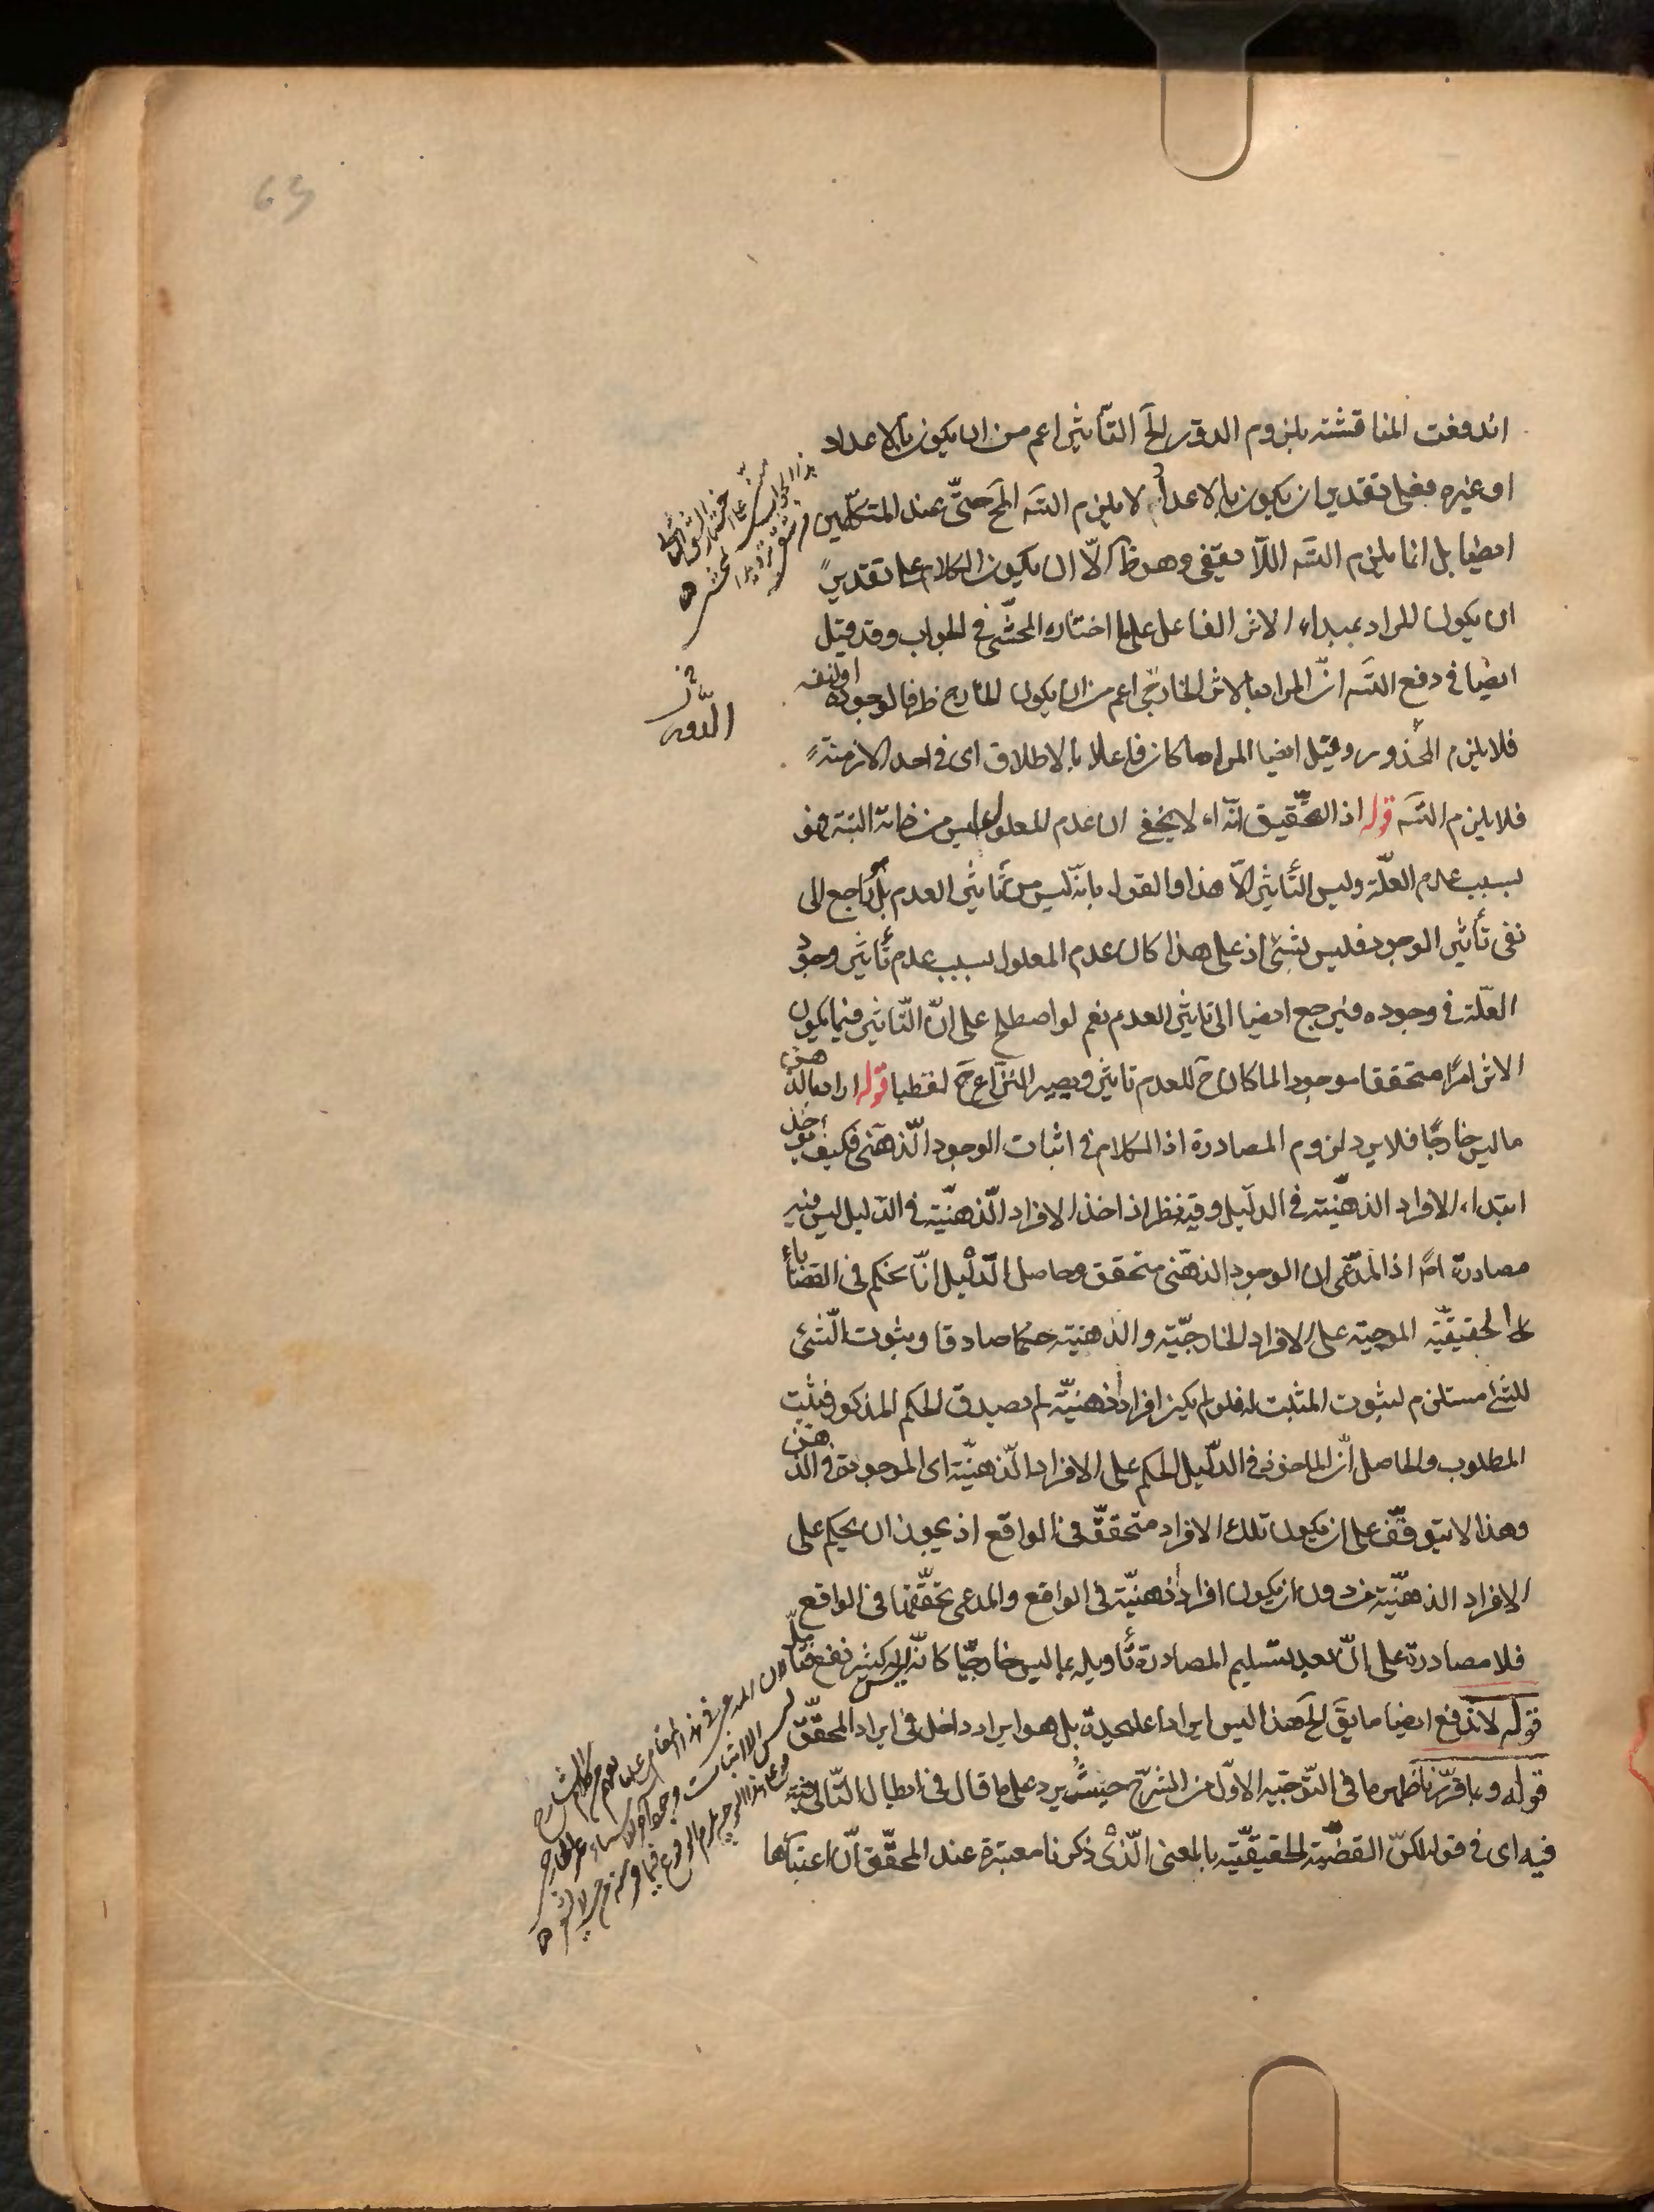 اندفعت المناقشة بلزوم الدور الخ التأثير اعم من ان يكون بالاعداد
او غيره فعلى تقدير ان يكون بالاعداد لا يلزم التسه المح حتى عند المتكلمين
ايضا بل انما يلزم التسه اللا يقفى وهو ظ الّا ان يكون الكلام على تقدير
ان يكون المراد بمبداء الاثر الفاعل على ما اختاره المحشّى في الجواب وقد قيل
ايضا في دفع التسه انّ المراد بالاثر الخارجى اعم من ان يكون الخارج ظرفا لوجوده او لنفسه
فلا يلزم المحذور وقيل ايضا المراد ما كان فاعلا بالاطلاق اى في احد الازمنة
فلا يلزم التسه قوله اذ التحقيق انّه اه لا يخفى ان عدم المعلول ليس من ذاته البتة فهو
بسبب عدم العلّة وليس التأثير الّا هذا والقول بانّه ليس من تأثير العدم بل هو راجع الى
نفى تأثير الوجود فليس بشئ اذ على هذا كان عدم المعلول بسبب عدم تأثير وجود
العلّة في وجوده فيرجع ايضا الى تاثير العدم نعم لو اصطلح على انّ التّاثير فيما يكون
الاثر امرًا متحققا موجودا لما كان ح للعدم تاثير ويصير النزاع ح لفظيا قوله اراد بالذهن
ما ليس خارجًا فلا يرد لزوم المصادرة اذ الكلام في اثبات الوجود الّذهنى فكيف يؤخذ
ابتداء الافراد الذهنيّة في الدليل وفيه نظر اذ اخذ الافراد الّذهنيّة في الدّليل ليس فيه
مصادرة اصلا اذ المدّعى ان الوجود الذهنى متحقق وحاصل الدّليل انّا نحكم في القضايا
الحقيقيّة الموجبة على الافراد الخارجيّة والذهنية حكما صادقا وثبوت الشّئ
للشئ مستلزم لثبوت المثبت له فلو لم يكن افراد ذهنيّة لم يصدق الحكم المذكور فيثبت
المطلوب والحاصل انّ الماخوذ في الدّليل الحكم على الافراد الّذهنيّة اى الموجودة في الذهن
وهذا لا يتوقّف على ان يكون تلك الافراد متحققّة في الواقع اذ يجوز ان يحكم على
الافراد الذهنيّة من دون ان يكون افراد ذهنيّة في الواقع والمدعى تحقّقها في الواقع
فلا مصادرة على انّ بعد تسليم المصادرة تأويله بما ليس خارجيّا كانّه ليس كثير نفع فتأمّل
قوله لاندفع ايضا ما يق الخ هذا ليس ايرادا علىحدة بل هو ايراد داخل في ايراد المحقّق
قوله وبما قرّرنا ظهر ما في التّوجيه الاوّل من الشرح حيث يرد على ما قال في ابطال التّالى
فيه اى في قوله لكنّ القضيّة الحقيقيّة بالمعنى الّذى ذكرنا معتبرة عند المحقّق انّ اعتبارها
في
الدّور